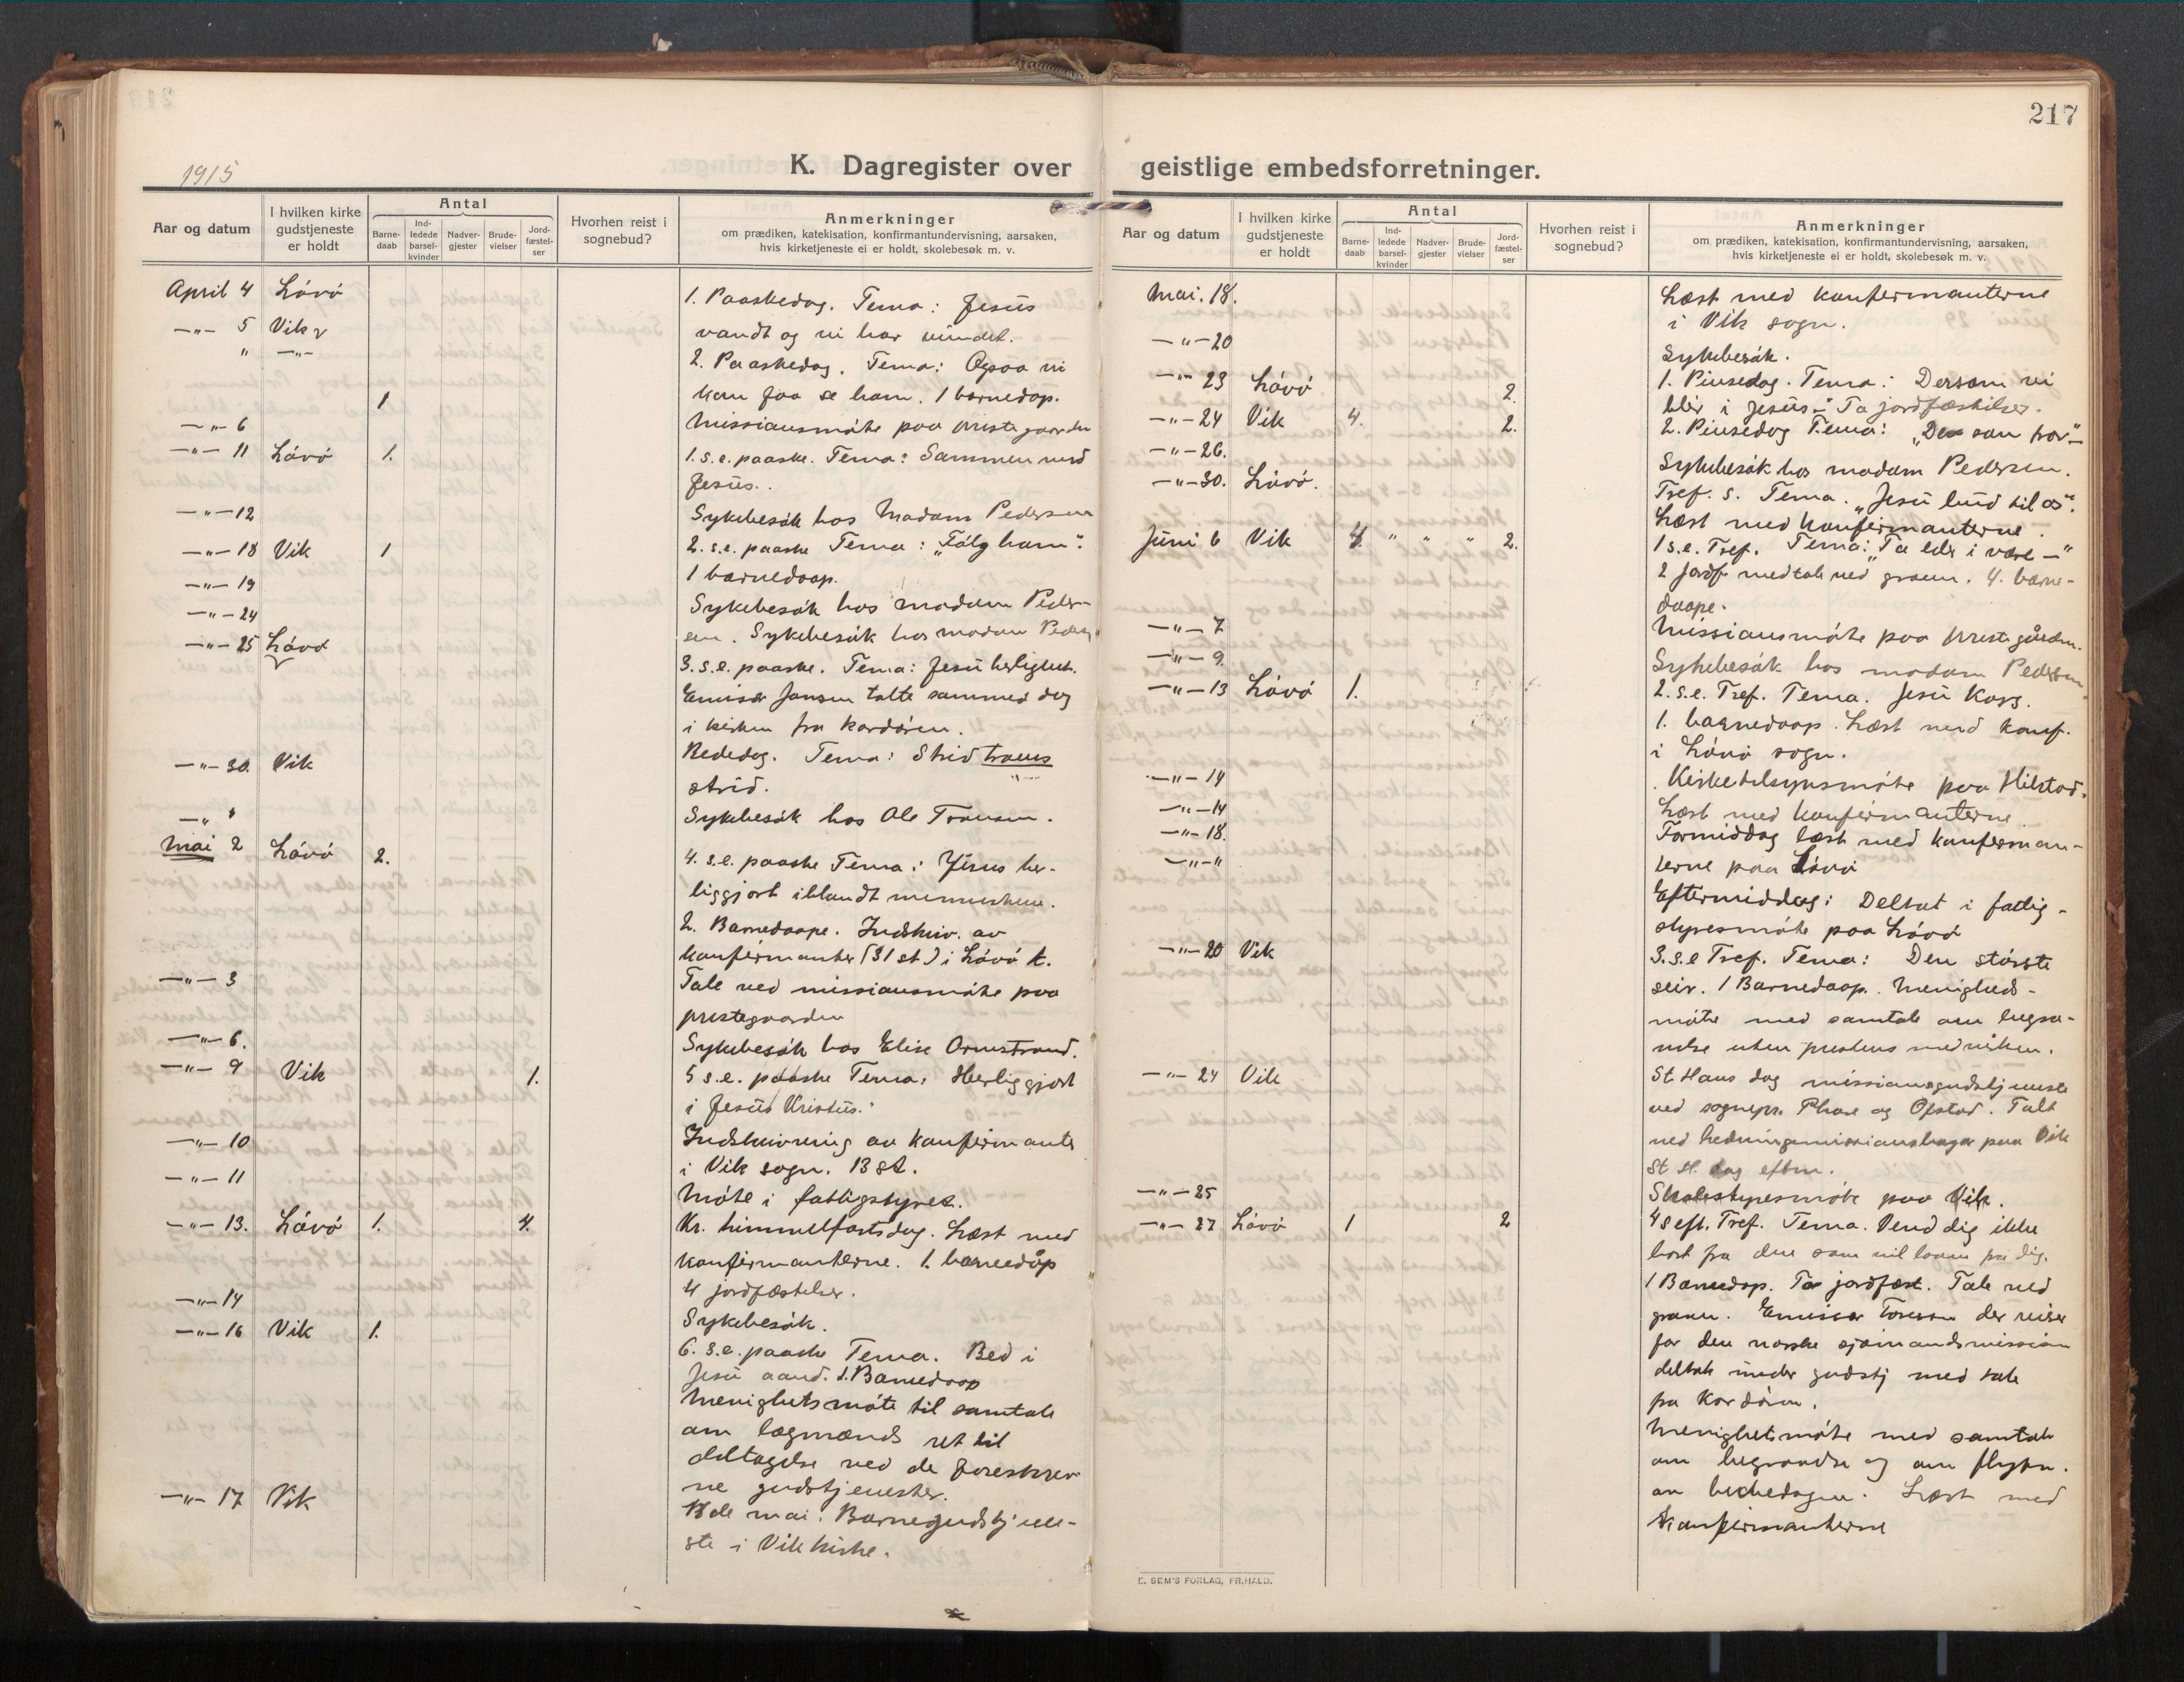 217
1915
K. Dagregister over geistlige embedsforretninger.
Aar og datum
I hvilken kirke gudstjeneste er holdt
Antal
Barne-daab
Ind-ledede barsel-kvinder
Nadver-gjester
Brude-vielser
Jord-fæstel-ser
Hvorhen reist i sognebud?
Anmerkninger
om prædiken, katekisation, konfirmantundervisning, aarsaken, hvis kirketjeneste ei er holdt, skolebesøk m. v.
April 4 Lövö 1. Paaskedag. Tema: Jesus
vandt og vi har vundet.
—"— 5 Vik
" —"— 1 2. Paaskedag. Tema: Ogsaa vi
kan faa se ham. 1 barnedop.
—"— 6 Missionsmöte paa prestegaarden
—"— 11 Lövö 1. 1. s. e. paaske. Tema: Sammen med
Jesus.
—"— 12 Sykebesök hos Madam Pedersen
—"— 18 Vik 1 2. s. e. paaske Tema: "Fölg ham".
1 barnedaap.
—"— 19 Sykebesök hos madam Peder-
—"— 24 sen. Sykebesök hos madam
—"— 25 Lövö 3. s. e. paaske. Tema: Jesu herlighet.
Emisær Jansen talte sammed dag
i kirken fra kordören.
—"— 30. Vik Bededag. Tema: Strid troens
strid.
—"— " Sykebesök hos Ole
Mai 2 Lövö 2. 4. s. e. paaske Tema: Jesus her-
liggjort iblandt menneskene.
2. Barnedaape. Indskriv. av
konfirmanter (31 st) i Lövö k.
—"— 3 Tale ved missionsmöte paa
prestegaarden
—"— 6. Sykebesök hos Elise Ormstrand.
—"— 9 Vik 1. 5 s. e. paaske Tema: Herliggjort
i Jesus Kristus.
—"— 10 Indskrivning av konfirmanter
i Vik sogn. 13 st.
—"— 11 Möte i fattigstyret.
—"— 13. Lövö 1. 4. Kr. himmelfartsdag. Læst med
konfirmanterne. 1. barnedåp
4 jordfæstelser.
—"— 14 Sykebesök.
—"— 16 Vik 1. 6. s. e. paaske Tema. Bed i
Jesu aand. 1. Barnedaap
Menighetsmöte til samtale
om lægmænds ret til
deltagelse ved de foreskrev-
ne gudstjenester.
—"— 17 Vik mai. Barnegudstjene-
ste i Vik kirke.
Aar og datum
I hvilken kirke gudstjeneste er holdt
Antal
Barne-daab
Ind-ledede barsel-kvinder
Nadver-gjester
Brude-vielser
Jord-fæstel-ser
Hvorhen reist i sognebud?
Anmerkninger
om prædiken, katekisation, konfirmantundervisning, aarsaken, hvis kirketjeneste ei er holdt, skolebesøk m. v.
Mai. 18. Læst med konfirmanterne
i Vik sogn.
—"— 20 Sykebesök.
—"— 23 Lövö 2. 1. Pinsedag. Tema: Dersom vi
blir i Jesus— To jordfæstelser.
—"— 24 Vik 4. 2. 2. Pinsedag Tema: "Den som tror—"
—"— 26. Sykebesök hos madam Pedersen.
—"— 30. Lövö. Tref. s. Tema. "Jesu bud til os".
Læst med konfirmanterne.
Juni 6 Vik 4. " " " 2. 1 s. e. Tref. Tema: "Ta eder i vare —"
2 jordf. med tale ved graven. 4. barne-
daape.
—"— 7 Missionsmöte paa prestegården.
—"— 9. Sykebesök hos madam Pedersen
—"— 13 Lövö 1. 2. s. e. Tref. Tema. Jesu Kors.
1. barnedaap. Læst med konf.
i Lövö sogn.
—"— 14 Kirketilsynsmöte paa Hilstad.
—"— 14 Læst med konfirmanterne
—"— 18. Formiddag læst med konfirman-
terne paa Lövö
—"— " Eftermiddag: Deltat i fattig-
styresmöte paa Lövö
—"— 20 Vik 3. s. e Tref. Tema: Den störste
seir. 1 Barnedaap. Menigheds-
möte med samtale om begra-
velse uten prestens medvirken.
—"— 24 Vik St Hans dag missionsgudstjeneste
ved sognepr. og Ofstad. Talt
ved paa Vik
St H. dag eftm.
—"— 25 Skolestyresmöte paa Vik.
—"— 27 Lövö 1 2 4 s eft. Tref. Tema. Vend dig ikke
bort fra den som vil
1 Barnedop. To jordfæst. Tale ved
graven. Emisær der reiser
for den norske sjömandsmission
deltok under gudstj med tale
fra kordören.
Menighetsmöte med samtale
om og om flytn.
av Læst med
konfirmanterne
E. SEM'S FORLAG, FR.HALD.